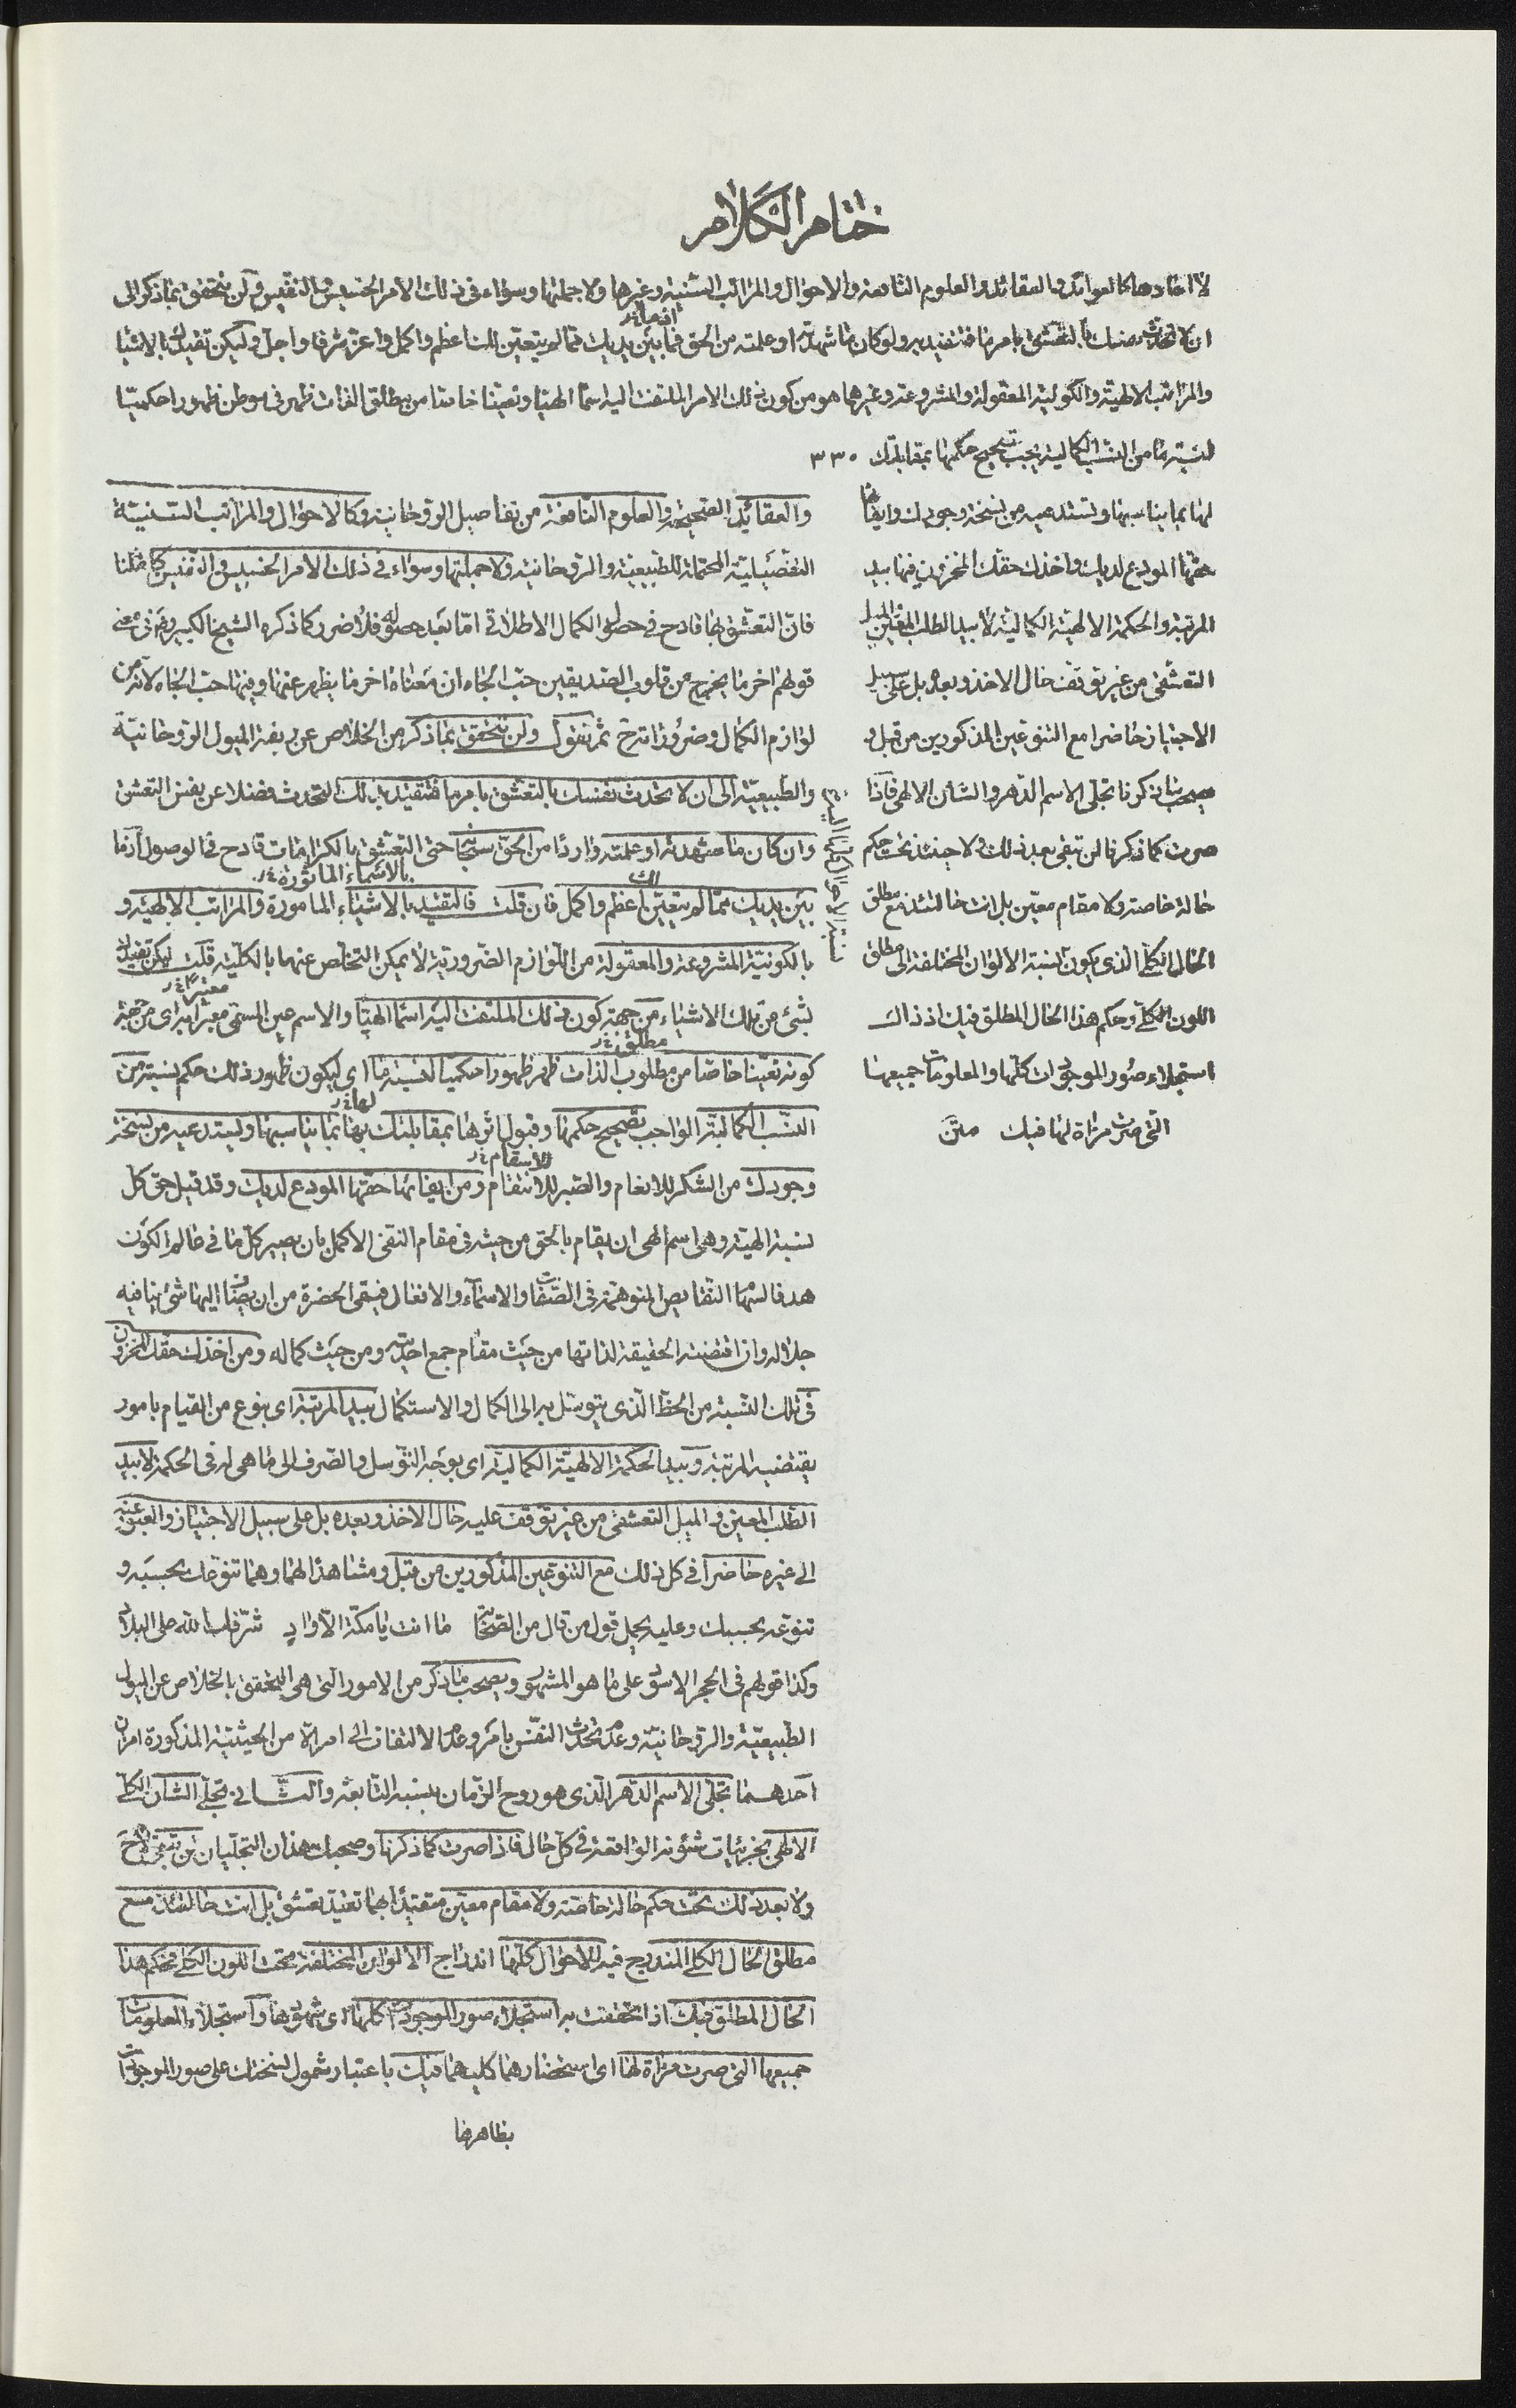 ختام الكلام
لا احادها كالعوائد والعقائد والعلوم النافعة والاحوال والمراتب السنية وغيرها ولا جملتها وسواء في ذلك الامر الخسيس والنفيس وان تتحقق بما ذكر الى
ان لا تحدث نفسك بالتعشق بامر ما فتتقيد به ولو كان ما شهدته او علمته من الحق فما بين يديك مما لم يتعين لك اعظم واكمل واعز شرفا واجل وليكن تقيدك بالاشيا
والمراتب الالهية والكونية المعقولة والمشروعة وغيرهما هو من كون ذلك الامر الملتفت اليه اسما الهيا وتعينا خاصا من مطلق الذات ظهر في موطن ظهورا حكميا
لنسبة ما من النسب الكمالية يجب تصحيح حكمها بمقابلتك ٣٣٠
لها بما يناسبها وتستدعيه من نسخة وجودك وايفائها
حقها المودع لديك واخذك حقك المخزون فيها بيد
المرتبة والحكمة الالهية الكمالية لا بيد الطلب المعين والميل
التعشقي من غير توقف حال الاخذ وبعده بل على سبيل
الاجتياز حاضرا مع التنوعين المذكورين من قبل و
يصحب ما ذكرنا تجلى الاسم الدهر والشان الالهي فاذا
صرت كما ذكرنا لن تبقى بعد ذلك ولا حينئذ تحت حكم
حالة خاصة ولا مقام معين بل انت حالتئذ مع مطلق
الحال الكلي الذي يكون نسبة الالوان المختلفة الى مطلق
اللون الكلي وحكم هذا الحال المطلق فيك اذ ذاك
استجلاء صور الموجودات كلها والمعلومات جميعها
التي صرت مراة لها فيك متن
والعقائد الصحيحة والعلوم النافعة من تفاصيل الروحانية وكالاحوال والمراتب السنية
التفصيلية المحتملة للطبيعية والروحانية ولا جملتها وسواء في ذلك الامر الخسيس والنفيس كما قلنا
فان التعشق بها قادح في حصول الكمال الاطلاقي اما بعد حصوله فلا ضرر كما ذكره الشيخ الكبير رضى في معنى
قولهم اخر ما يخرج من قلوب الصديقين حب الجاه ان معناه اخر ما يظهر عنها وفيها حب الجاه لانه من
لوازم الكمال وضروراته ثم نقول ولن تتحقق بما ذكر من الخلاص عن ربقة الميول الروحانية
والطبيعية الى ان لا تحدث نفسك بالتعشق بامر ما فتتقيد بذلك التحدث فضلا عن نفس التعشق
وان كان ما شهدته او علمته واردا من الحق سبحانه حتى التعشق بالكرامات قادح في الوصول اذ ما
بالاسماء الماثورة
لك
بين يديك مما لم يتعين اعظم واكمل فان قلت فالتقيد بالاشياء المامورة والمراتب الالهية و
بالكونية المشروعة والمعقولة من اللوازم الضرورية لا يمكن التخلص عنها بالكلية قلت ليكن تقيدك
بشئ من تلك الاشياء من جهة كون ذلك الملتفت اليه اسما الهيا والاسم عين المسمى معبرا به اى من جهة
مطلق
كونه تعينا خاصا من مطلوب الذات ظهر ظهورا حكميا لنسبة ما اى ليكون ظهور ذلك حكم نسبة من
لها
النسب الكمالية الواجب تصحيح حكمها وقبول اثرها بمقابلتك بها بما يناسبها ويستدعيه من نسخة
للانتقام
وجودك من الشكر للانعام والصبر للانتقام ومن ايفائها حقها المودع لديك وقد قيل حق كل
نسبة الهية وهى اسم الهى ان يقام بالحق من حيثه في مقام التقى الاكمل بان يصير كل ما في عالم الكون
هدفا لسهام النقايص المتوهمة في الصفات والاسماء والافعال فيقي الحضرة من ان يضاف اليها شئ ينافيه
جلاله وان اقتضته الحقيقة لذاتها من حيث مقام جمع احديته ومن حيث كماله ومن اخذك حقك المخزون
في تلك النسبة من الحظ الذي يتوسل به الى الكمال والاستكمال بيد المرتبة اى بنوع من القيام بامور
يقتضيه المرتبة وبيد الحكمة الالهية الكمالية اى بوجه التوسل والصرف الى ما هى له في الحكمة لا بيد
الطلب المعين والميل التعشقي من غير توقف عليه حال الاخذ وبعده بل على سبيل الاجتياز والعبور عنه
الى غيره حاضرا في كل ذلك مع التنوعين المذكورين من قبل ومشاهدا لهما وهما تنوعك بحسبه و
تنوعه بحسبك وعليه يحمل قول من قال من الصحابة ما انت يا مكة الا واد شرفك الله على البلاد
وكذا قولهم في الحجر الاسود على ما هو المشهور ويصحب ما ذكر من الامور التي هى التحقق بالخلاص عن الميول
الطبيعية والروحانية وعدم تحدث النفس بامر وعدم الالتفات الى امر الا من الحيثية المذكورة امران
احدهما تجلى الاسم الدهر الذي هو روح الزمان بنسبه التابعة والثاني تجلى الشان الكلي
الالهى بجزئيات شؤنه الواقعة في كل حال فاذا صرت كما ذكرنا وصحبك هذان التجليان لن تبقى ح
ولا بعد ذلك تحت حكم حالة خاصة ولا مقام معين متقيدا بهما تقيد تعشق بل انت حالتئذ مع
مطلق الحال الكلي المندرج فيه الاحوال كلها اندراج الالوان المختلفة تحت اللون الكلي فحكم هذا
الحال المطلق فيك اذا تحققت به استجلاء صور الموجودات كلها اى شهودها واستجلاء المعلومات
جميعها التي صرت مراة لها اى استحضارهما كليهما فيك باعتبار شمول نسختك على صور الموجودات
بظاهرها